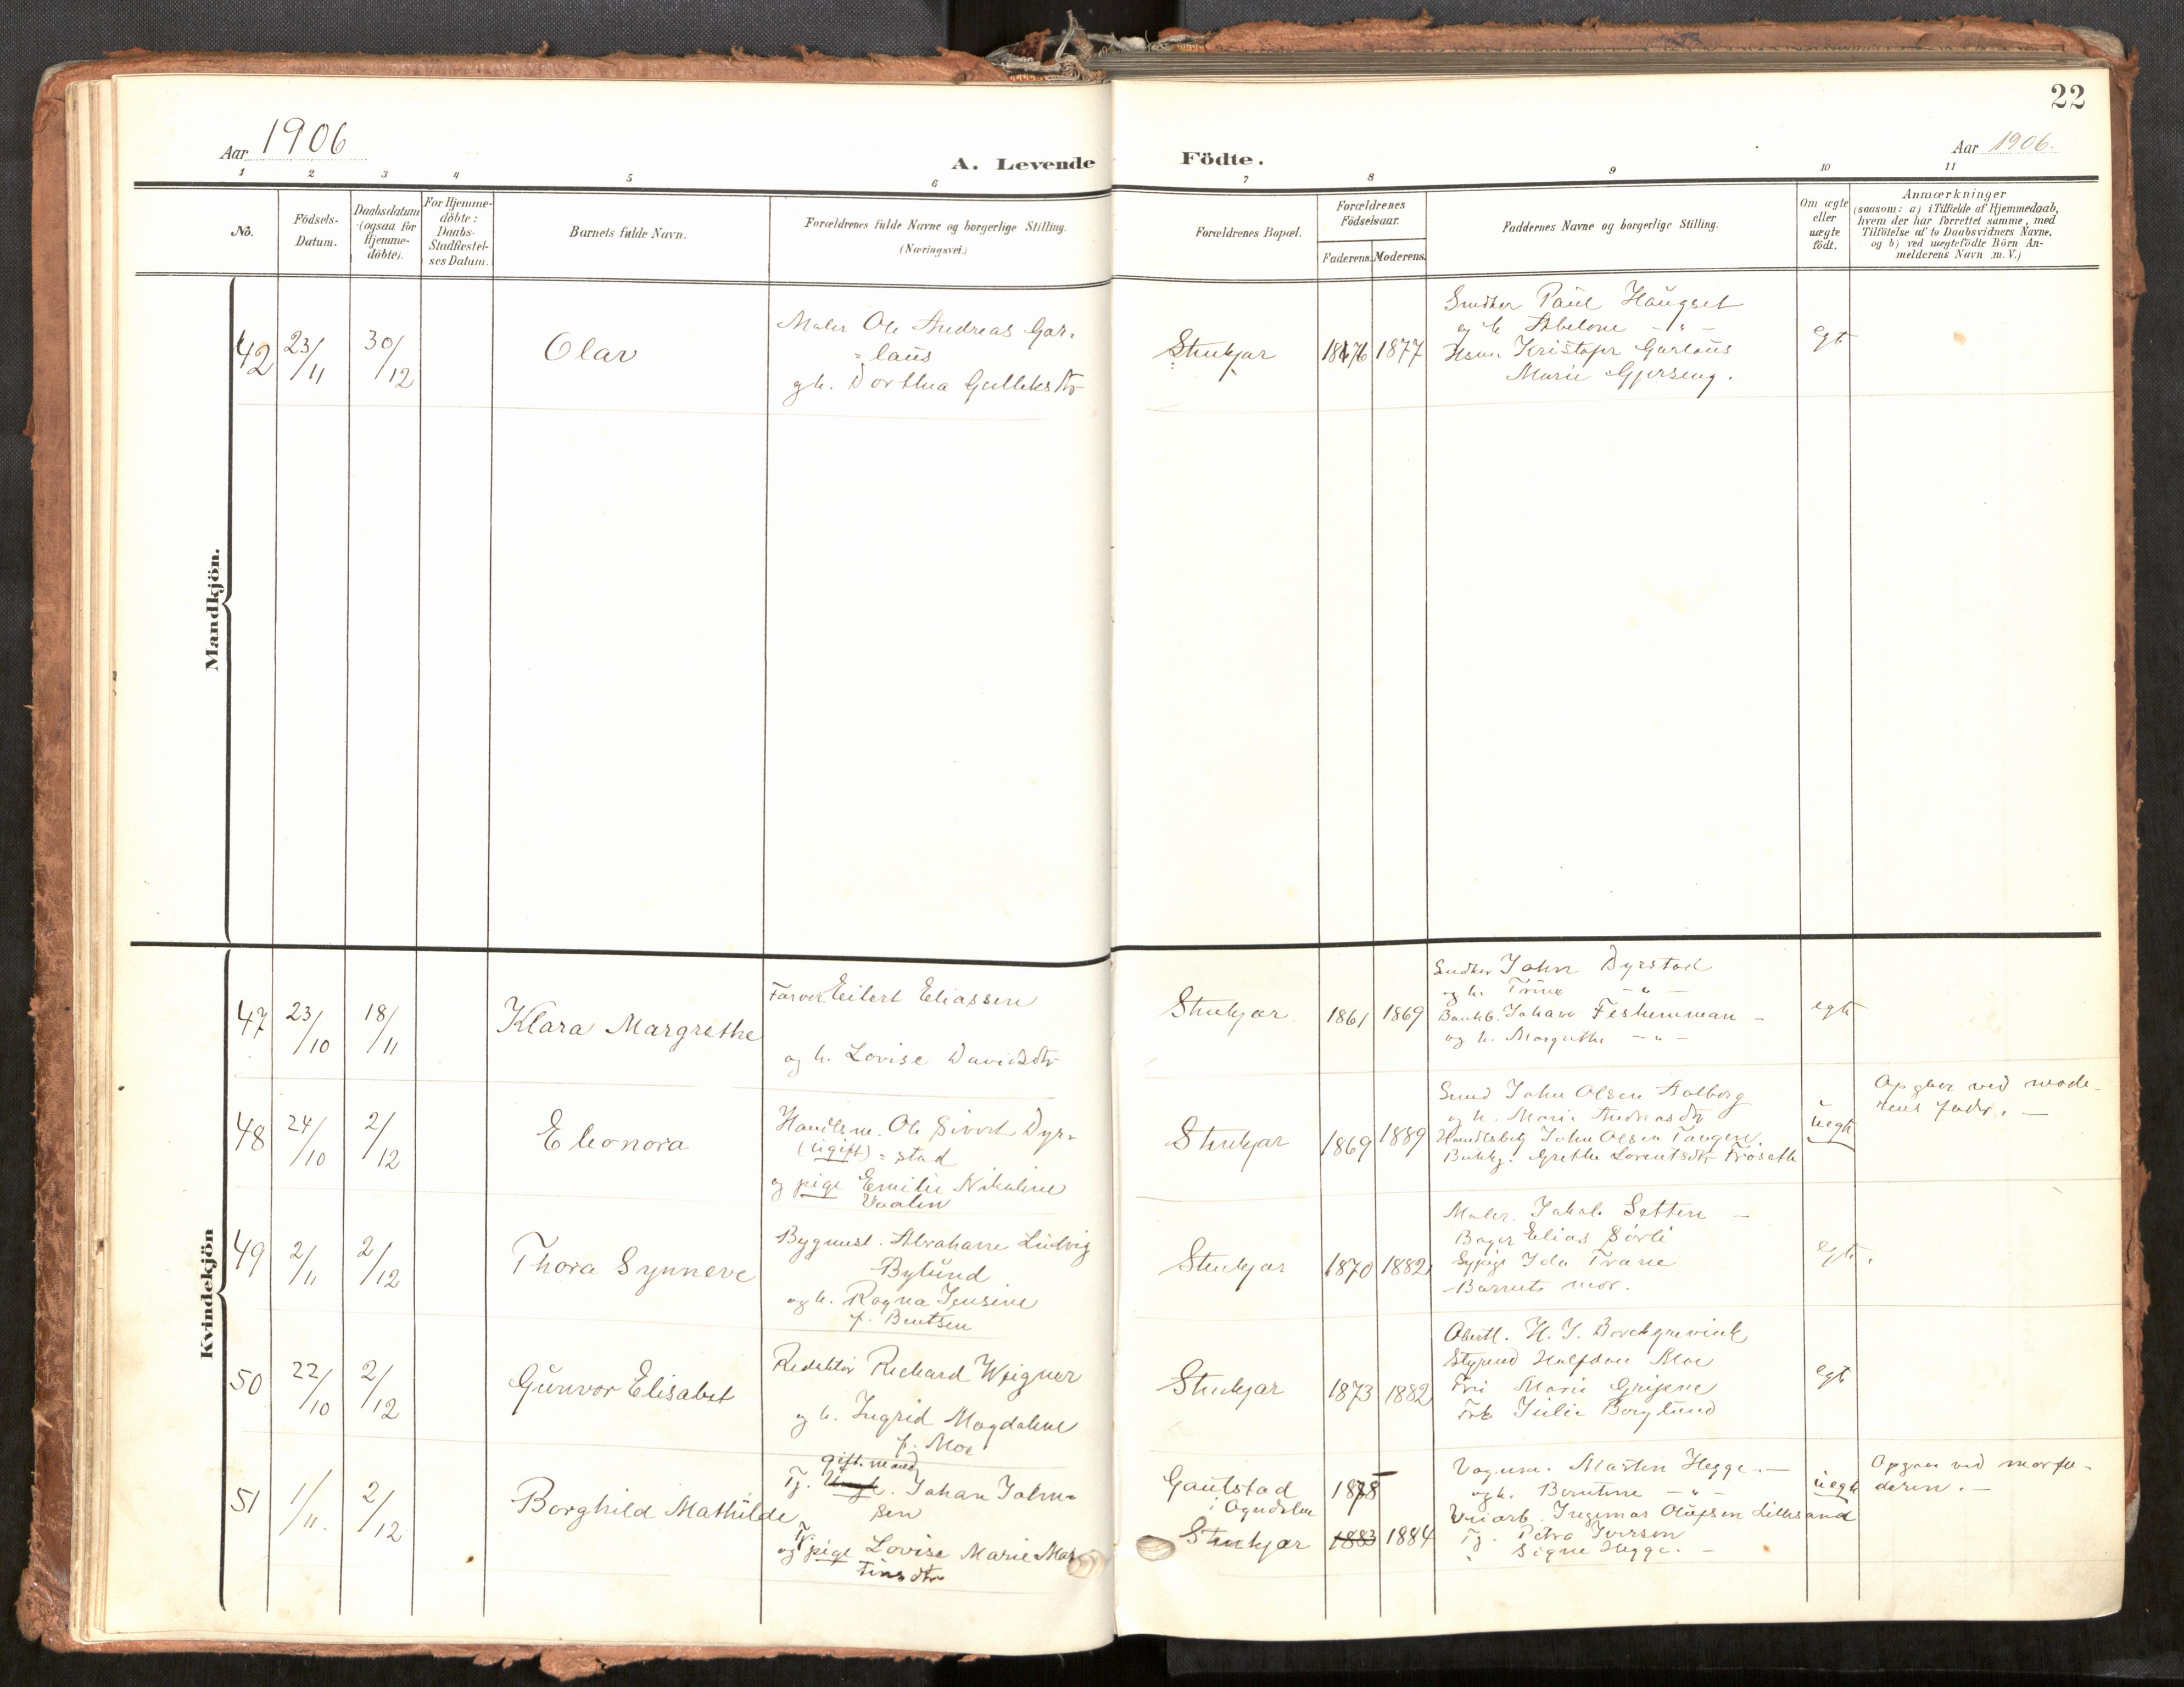 22
Aar 1906
A. Levende Födte.
Aar 1906.
1 2 3 4 5 6 7 8 9 10 11
No.
Födsels-
Datum.
Daabsdatum
(ogsaa for
Hjemme-
döbte).
For Hjemme-
döbte:
Daabs-
Stadfæstel-
ses Datum.
Barnets fulde Navn.
Forældrenes fulde Navne og borgerlige Stilling.
(Næringsvei.)
Forældrenes Bopæl.
Forældrenes
Födselsaar.
Faderens. Moderens.
Faddernes Navne og borgerlige Stilling.
Om ægte
eller
uægte
födt.
Anmærkninger
(saasom: a) i Tilfælde af Hjemmedaab,
hvem der har forrettet samme, med
Tilföielse af to Daabsvidners Navne,
og b) ved uægtefödte Börn An-
melderens Navn m. V.)
Mandkjön.
42
23/11
30/12
Olav
Maler Ole Andreas Gar-
=laus
og h. Dorthea Gulleksdtr
Stenkjær
1876
1877
Snedker Paul Haugset
og h. Abelone - " -
Kristofer Garlaus
Marie Gjerseng.
egt
Kvindekjön
47
23/10
18/11
Klara Margrethe
Farver Eilert Eliassen
og h. Lovise Davidsdtr
Stenkjær
1861
1869
Snedker John Dyrstad
og h. Trine - " -
Bankb. Johan Feshemman -
og h. Margrethe - " -
egte
48
24/10
2/12
Eleonora
Handelsm. Ole Sivert Dyr=
(ugift) = stad
og pige Emilie Nikoline
Vaalen
Stenkjær
1869
1889
Smed John Olsen Aalborg
og h. Marie Andreasdtr
Handelsbetj John Olsen Tangen.
Butikj. Grethe Lorentsdtr Fröseth
uegte
Opgave ved mode-
rens fader. -
49
2/11
2/12
Thora Synneve
Bygmest. Abraham Ludvig
Bylund
og h. Ragna Jensine
f. Bentsen
Stenkjær
1870
1882
Maler. Jakob Setten -
Bager Elias Sörli
Sypige Ida Trane
Barnets mor.
egte.
50
22/10
2/12
Gunvor Elisabet
Redaktör Rickard Weigner
og h. Ingrid Magdalene
f. Moe
Stenkjær
1873
1882
Oberstl. H. J. Borchgrevink
Styrmd Halfdan Moe
Fru Marie
Frk Julie Borglund
egt
51
1/11.
2/12
Borghild Mathilde
gift. mand
Tj. Ungk. Johan John=
sen
Tj.
og pige Lovise Marie Mar
tinsdtr
Gautstad
i Ogndalen
Stenkjær
1878
1883
1884
Vognm. Martin Hegge. -
og h. Berntine - " -
Veiarb. Ingemar Olufsen Lillesand
Tj. Petra Iversen
" Signe Hegge. -
uegte
Opgave ved morfa-
deren. -